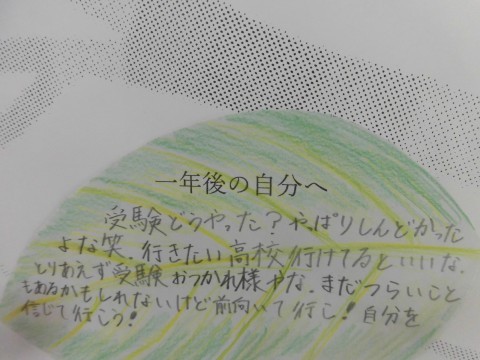 一年後の自分へ
受験どうやった?やっぱりしんどかった
よな笑.行きたい高校行けてるといいな.
とりあえず受験おつかれ様やな.まだつらいこと
もあるかもしれないけど前向いて行こ!自分を
信じて行こう!